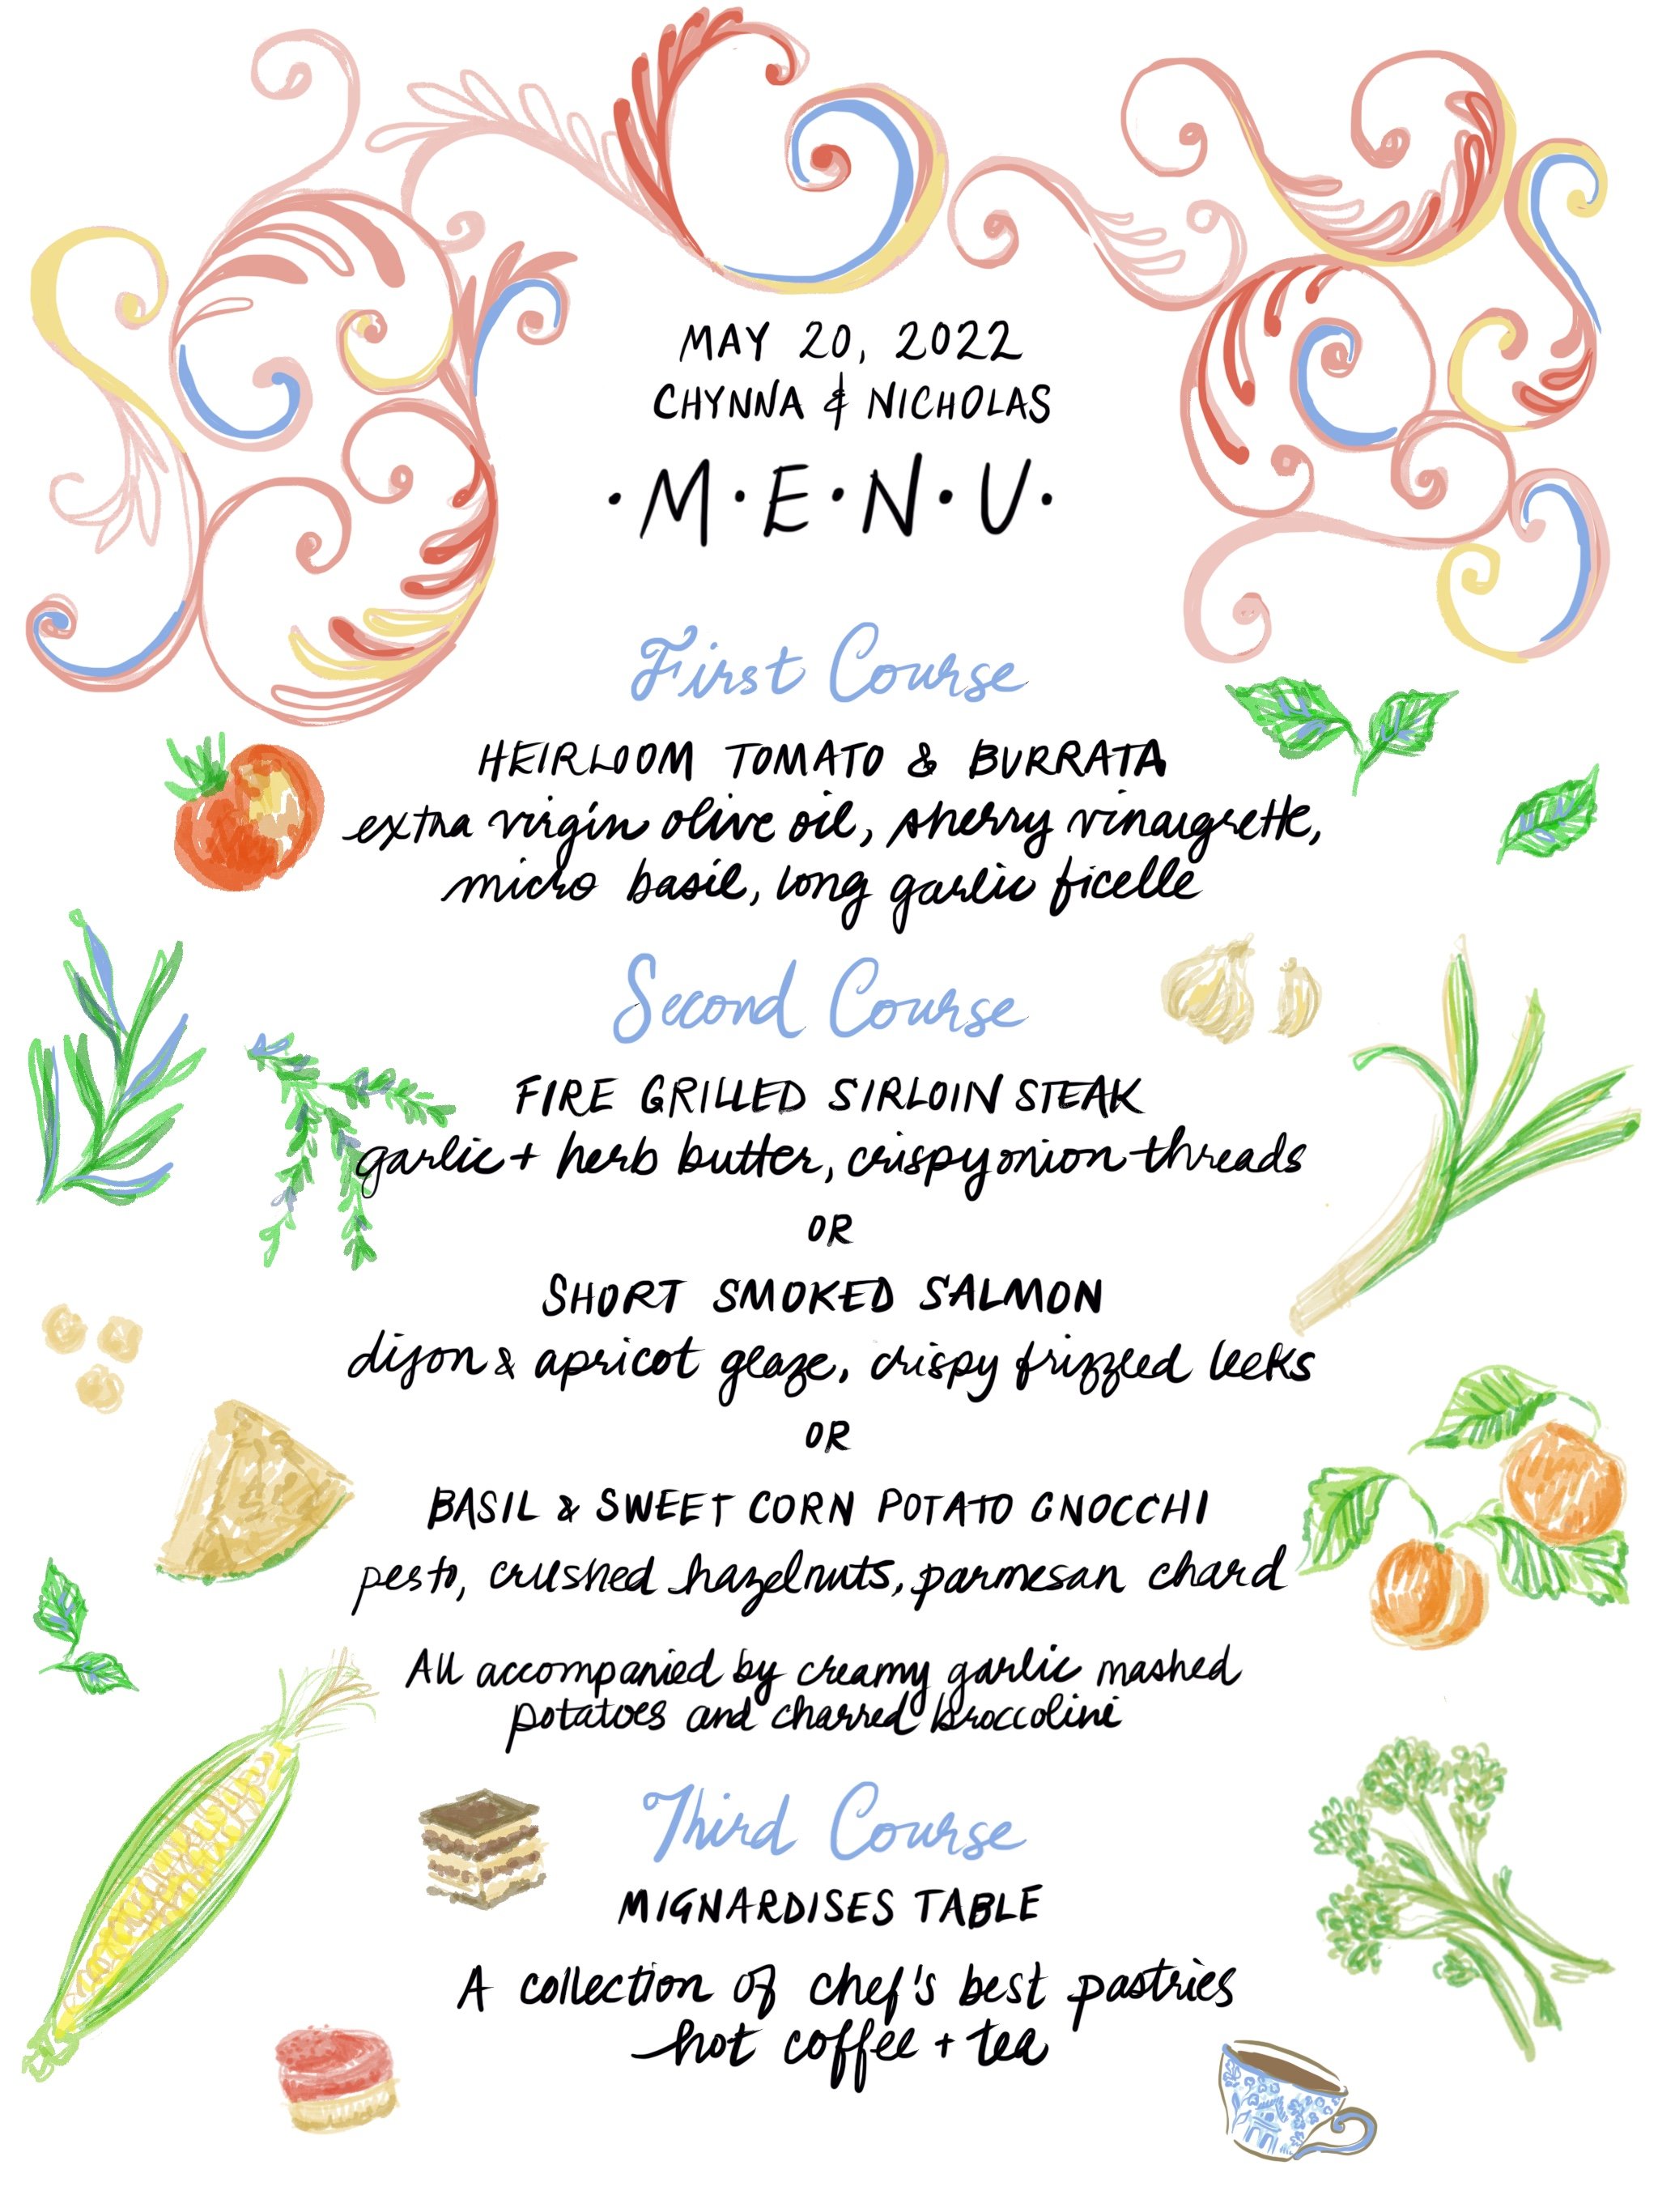 MAY 20, 2022
CHYNNA & NICHOLAS
·M·E·N·U·
First Course
HEIRLOOM TOMATO & BURRATA
extra virgin olive oil, sherry vinaigrette,
micro basil, long garlic ficelle
Second Course
FIRE GRILLED SIRLOIN STEAK
garlic + herb butter, crispy onion threads
OR
SHORT SMOKED SALMON
dijon & apricot glaze, crispy frizzled leeks
OR
BASIL & SWEET CORN POTATO GNOCCHI
pesto, crushed hazelnuts, parmesan chard
All accompanied by creamy garlic mashed
potatoes and charred broccolini
Third Course
MIGNARDISES TABLE
A collection of chef's best pastries
hot coffee + tea